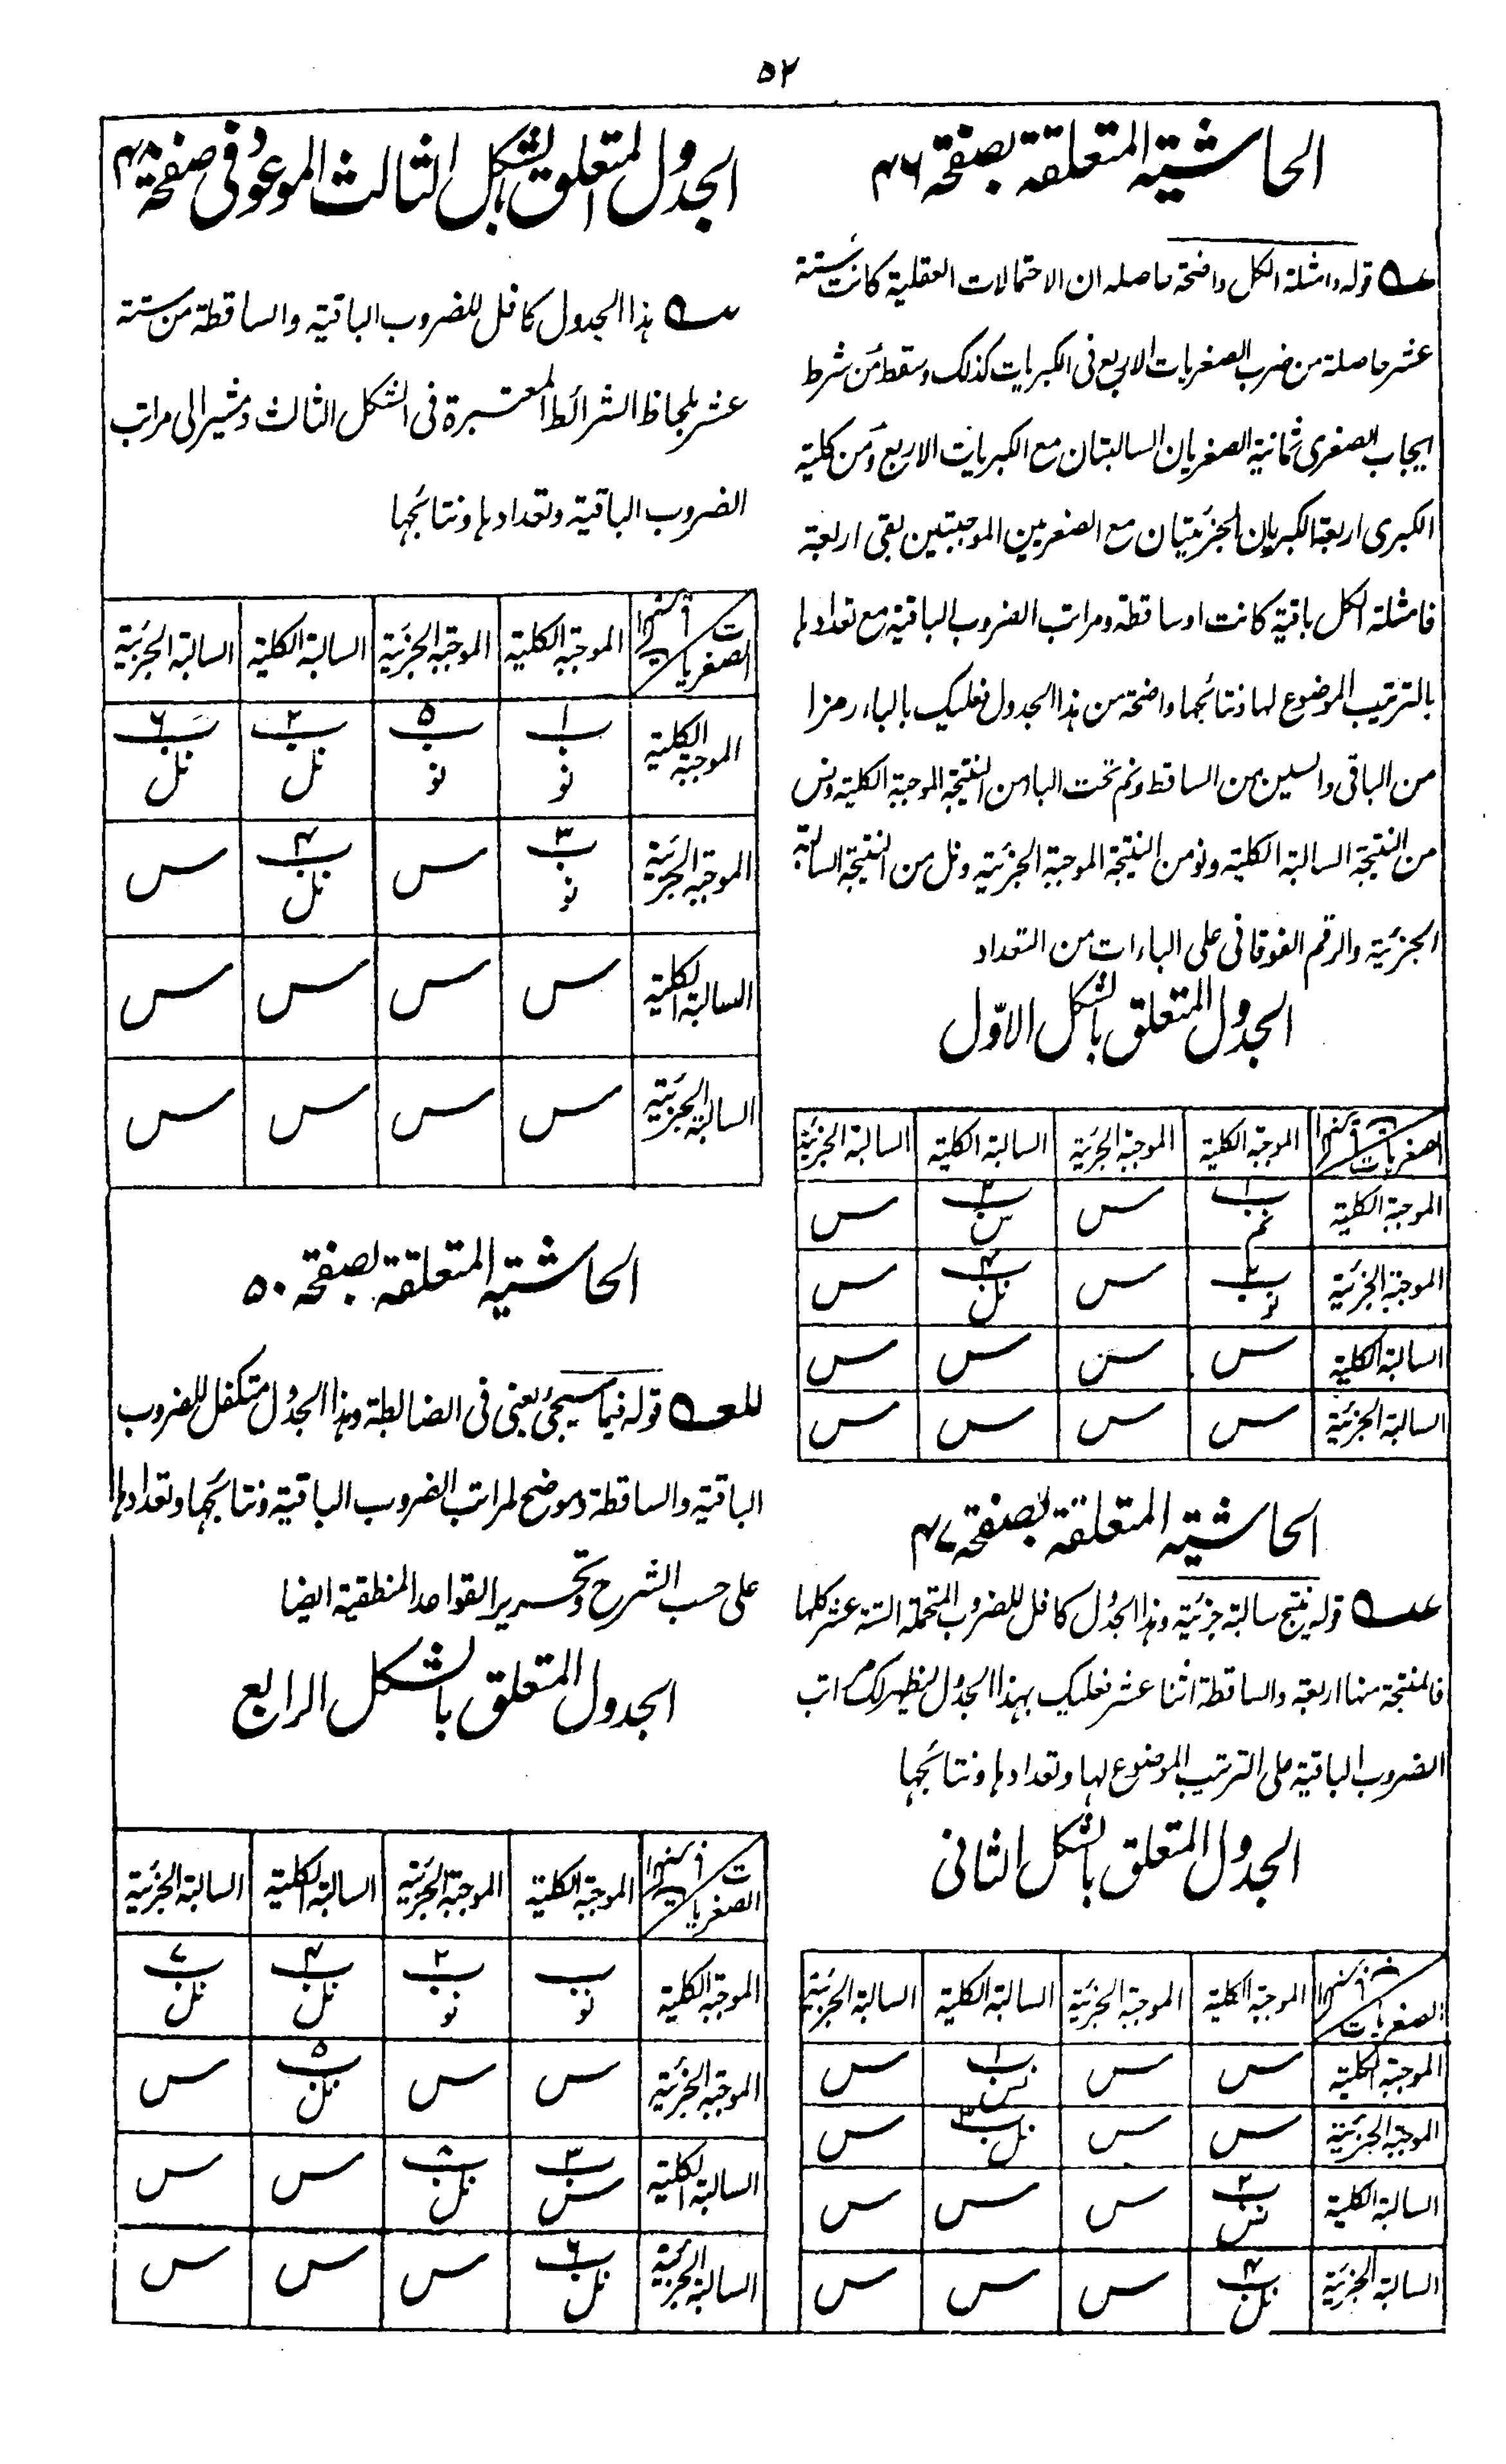 ۵۲
الحاشية المتعلقة بصفحة ۴۶
عــه قوله وامثلة الكل واضحة حاصله ان الاحتمالات العقلية كانت ستة
عشر حاصلة من ضرب الصغريات الاربع فى الكبريات كذلك وسقط من شرط
ايجاب الصغرى ثمانية الصغريان السالبتان مع الكبريات الاربع ومن كلية
الكبرى اربعة الكبريان الجزئيتان مع الصغريين الموجبتين بقى اربعة
فامثلة الكل باقية كانت او ساقطة ومراتب الضروب الباقية مع تعدادها
بالترتيب الموضوع لها ونتائجها واضحة من هذا الجدول فعليك بالباء رمزا
من الباقى والسين من الساقط ونم تحت البا من النتيجة الموجبة الكلية ونس
من النتيجة السالبة الكلية ونو من النتيجة الموجبة الجزئية ونل من النتيجة السالبة
الجزئية والرقم الفوقانى على الباءات من التعداد
الجدول المتعلق بالشكل الاوّل
الصغريات الكبريات الموجبة الكلية الموجبة الجزئية السالبة الكلية السالبة الجزئية
الموجبة الكلية ۱ ب نم س ۳ ب نس س
الموجبة الجزئية ۲ ب نو س ۴ ب نل س
السالبة الكلية س س س س
السالبة الجزئية س س س س
الحاشية المتعلقة بصفحة ۴۷
عــه قوله ينتج سالبة جزئية وهذا الجدول كافل للضروب المحتملة الستة عشر كلها
فالمنتجة منها اربعة والساقطة اثنا عشر فعليك بهذا الجدول ليظهر لك مراتب
الضروب الباقية على الترتيب الموضوع لها وتعدادها ونتائجها
الجدول المتعلق بالشكل الثانى
الصغريات الكبريات الموجبة الكلية الموجبة الجزئية السالبة الكلية السالبة الجزئية
الموجبة الكلية س س ۱ ب نس س
الموجبة الجزئية س س ۳ ب نل س
السالبة الكلية ۲ ب نس س س س
السالبة الجزئية ۴ ب نل س س س
الجدول المتعلق بالشكل الثالث الموعود فى صفحة ۴۸
ســه هذا الجدول كافل للضروب الباقية والساقطة من ستة
عشر بلحاظ الشرائط المعتبرة فى الشكل الثالث ومشير الى مراتب
الضروب الباقية وتعدادها ونتائجها
الصغريات الكبريات الموجبة الكلية الموجبة الجزئية السالبة الكلية السالبة الجزئية
الموجبة الكلية ۱ ب نو ۵ ب نو ۲ ب نل ۶ ب نل
الموجبة الجزئية ۳ ب نو س ۴ ب نل س
السالبة الكلية س س س س
السالبة الجزئية س س س س
الحاشية المتعلقة بصفحة ۵۰
للعــه قوله فيما سيجئ يعنى فى الضابطة وهذا الجدول متكفل للضروب
الباقية والساقطة وموضح لمراتب الضروب الباقية ونتائجها وتعدادها
على حسب الشرح وتحرير القواعد المنطقية ايضا
الجدول المتعلق بالشكل الرابع
الصغريات الكبريات الموجبة الكلية الموجبة الجزئية السالبة الكلية السالبة الجزئية
الموجبة الكلية ب نو ۲ ب نو ۴ ب نل ۷ ب نل
الموجبة الجزئية س س ۵ ب نل س
السالبة الكلية ۳ ب نس ۸ ب نل س س
السالبة الجزئية ۶ ب نل س س س